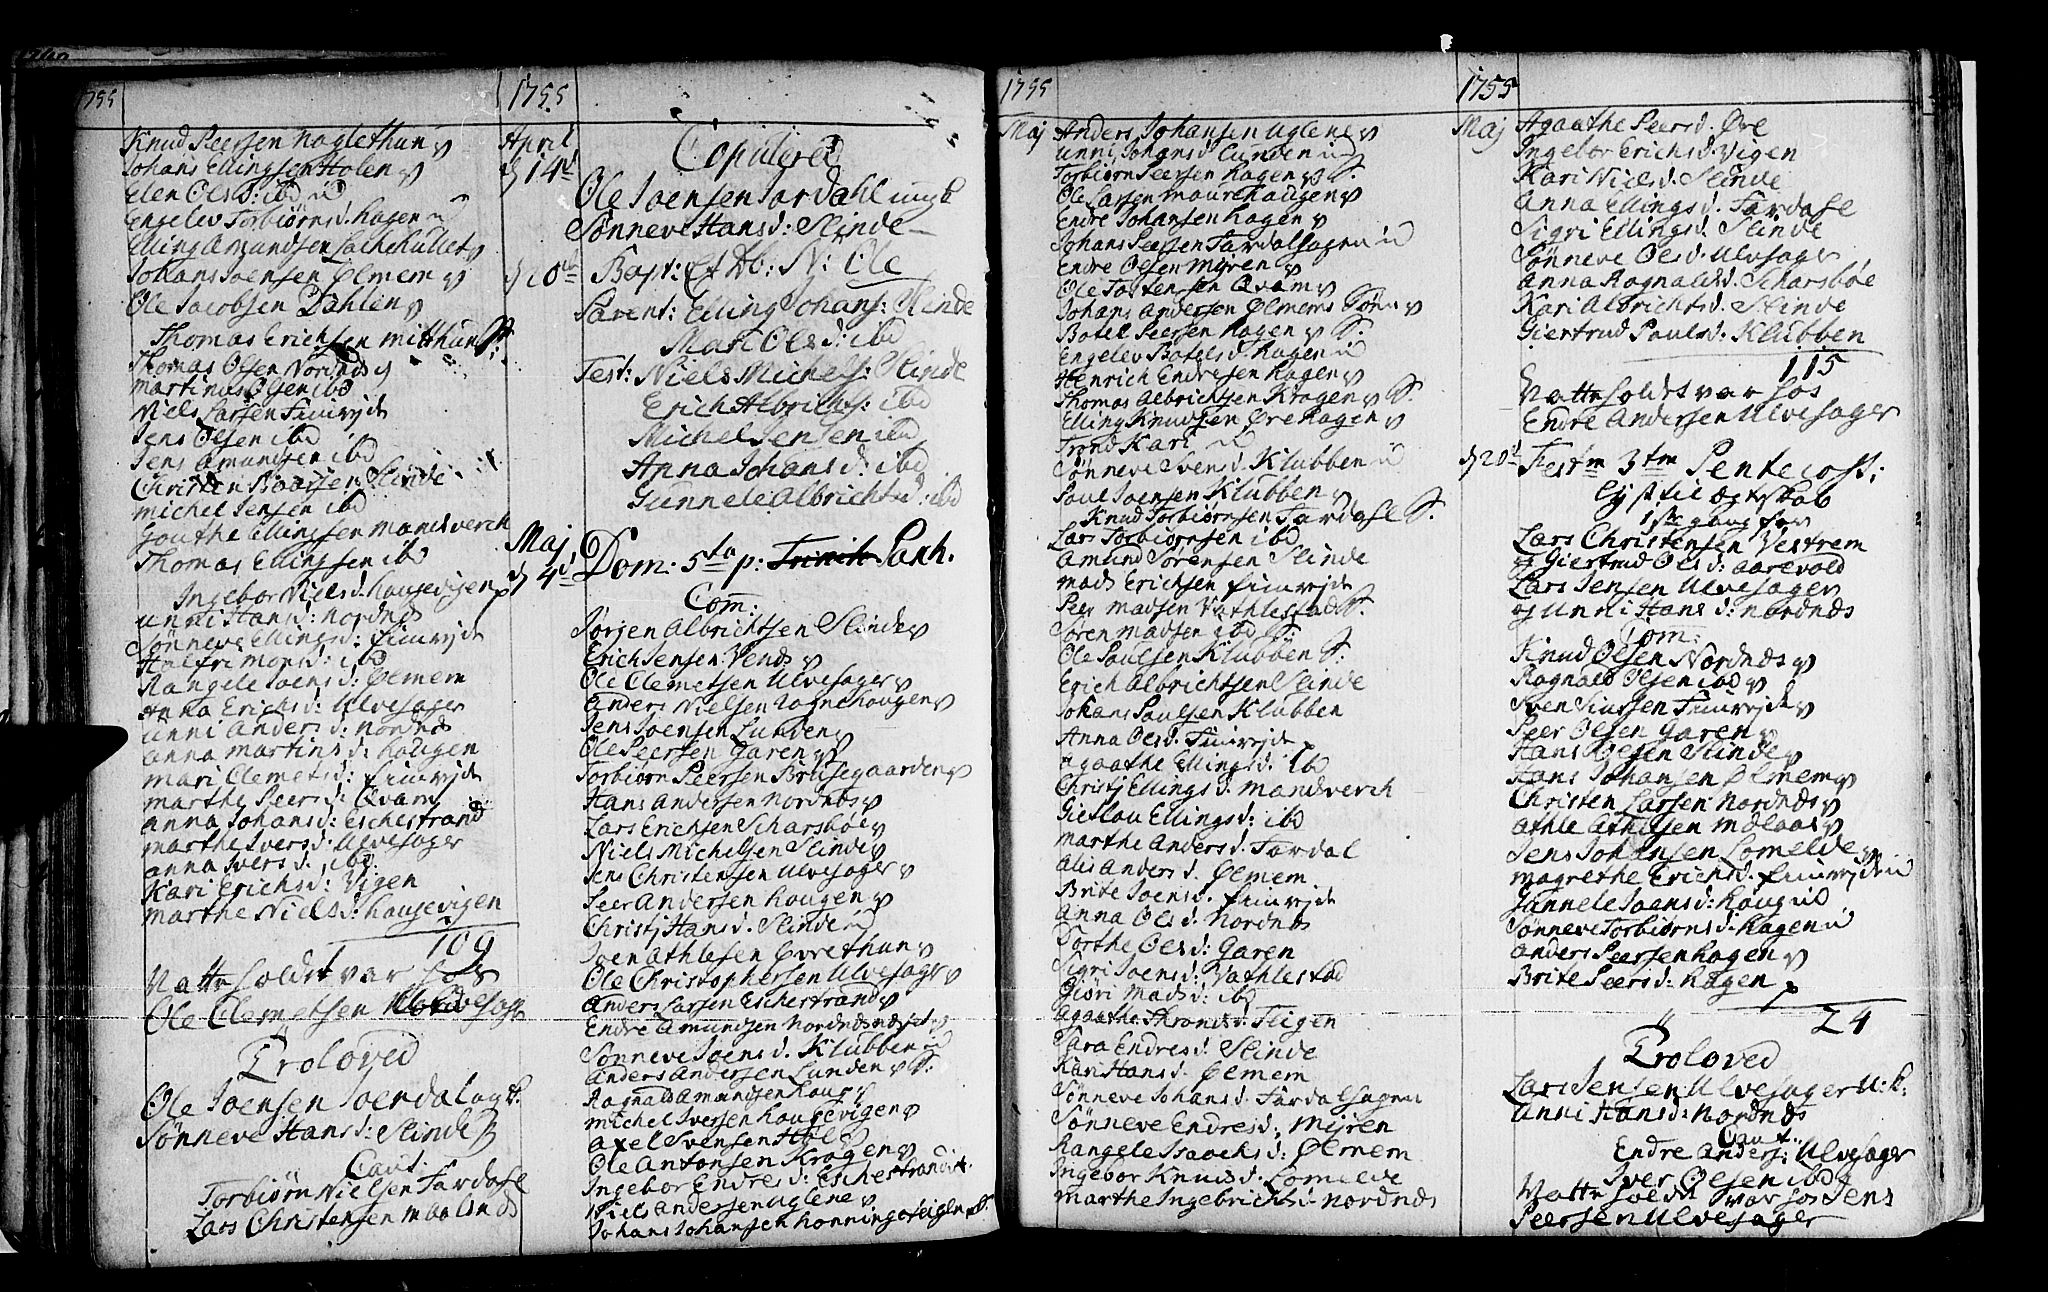 1755
Knud Peersen Naglethun
Johans Ellingsen Holen
Elen Olsd: ibd
Engelev Torbiørnsd. Hagen
Elling Amundsen
Johans Joensen Ølmem
Ole Jacobsen Dahlen
Thomas Erichsen Mitthun
Thomas Olsen Nordnæs
Martinus Olsen ibd
Niels Larsen Fimrejte
Jens Olsen ibd
Jens Amundsen ibd
Christen Baarsen Slinde
Michel Jensen ibd
Gouthe Ellingsen Mandverch
Thomas Ellingsen ibd
Ingebor Nielsd: Haugevigen
Unni Hansd: Nordnæs
Sønneve Ellingsd: Fimrejte
Halfri Monsd: ibd
Rangele Joensd: Ølmem
Anna Erichsd: Ulvesager
Unni Andersd: Nordnæs
Anna Martinsd: Haugen
Mari Clemetsd: Fimrejte
Marthe Peersd: Qvam
Anna Johansd: Eschestrand
Marthe Iversd: Ulvesager
Anna Iversd: ibd
Kari Erichsd: Vigen
Marthe Nielsd: Haugevigen
109
Natteholdt var hos
Ole Clemetsen Ulvesager
Troloved
Ole Joensen Joendal
Sønneve Hansd: Slinde
Caut:
Torbiørn Nielsen Fardale
Lars Christensen
1755
April
d 14d
Copulered
Ole Joensen Jordahl ungk
Sønneve Hansd: Slinde
d 20d Bapt: N: Ole
Parent: Elling Johans: Slinde
Mari Olsd: ibd
Test: Niels Michels: Slinde
Erich Albrichts: ibd
Michel Jensen ibd
Anna Johansd: ibd
Gunnele Albrichtsd: ibd
Maj
d 4d Dom. 5ta p: Pasch.
Com:
Jørgen Albrichtsen Slinde
Erich Jensen Vends
Ole Clemetsen Ulvesager
Anders Nielsen Vognehougen
Jens Joensen Lunden
Ole Peersen Garen
Torbiørn Peersen Brusegaarden
Hans Andersen Nordnæs
Lars Erichsen Scharsbøe
Niels Michelsen Slinde
Jens Christensen Ulvesager
Peer Andersen Hougen
Christj Hansd. Slinde
Joen Athlesen Øvrethun
Ole Christophersen Ulvesager
Anders Larsen Eschestrand
Endre Amundsen
Sønneve Joensd. Klubben
Anders Andersen Lunden S:
Ragnald Amundsen Houg
Michel Iversen Haugevigen
Axel Svensen
Ole Antonsen Kragen
Ingebor Endresd: Eschestrand
Niels Andersen Uglene
Johans Johansen
1755
Maj
Anders Johansen Uglene
Unni Johansd Lunden
Torbiørn Peersen Hagen S.
Ole Larsen Maurehaugen
Endre Johansen Hagen
Johans Peersen Fardalsagen
Endre Olsen Myren
Ole Tostensen Qvam
Johans Andersen Ølmems Sønn
Botel Peersen Hagen S.
Engelev Botelsd: Hagen
Henrich Endresen Hagen
Thomas Albrichtsen Kragen S.
Elling Knudsen Ørehagen
Trond Kari
Sønneve Svensd. Klubben
Paul Joensen Klubben
Knud Torbiørnsen Fardale S.
Lars Torbiørnsen ibd
Amund Sørensen Slinde
Mads Erichsen Fimrejte
Peer Madsen Vathlestad S.
Søren Madsen ibd S:
Ole Paulsen Klubben S.
Erich Albrichtsen Slinde
Johans Paulsen Klubben
Anna Olsd. Fimrejte
Agaathe Ellingsd: ibd
Christj Ellingsd: Mandverch
Gietlau Ellingsd: ibd
Marthe Andersd: Fardal
Alis Andersd. Ølmem
Brite Joensd: Fimrejte
Anna Olsd. Nordnæs
Dorthe Olsd: Garen
Sigri Joensd: Vathlestad
Giøri Madsd: ibd
Agaathe Thronsd. Fligen
Sara Endresd. Slinde
Kari Hansd: Ølmem
Sønneve Johansd. Fardalsagen
Sønneve Endresd: Myren
Rangele Isaachsd: Ølmem
Ingebor Knudsd. Lomelde
Marthe Ingebrichtsd: Nordnæs
1755
Maj
Agaathe Peersd. Øre
Ingebor Erichsd. Vigen
Kari Nielsd. Slinde
Anna Ellingsd. Fardale
Sigri Ellingsd. Slinde
Sønneve Olsd. Ulvesager
Anna Ragnaldsd. Scharsbøe
Kari Albrichtsd. Slinde
Giertrud Paulsd: Klubben
115
Natteholdt var hos
Endre Andersen Ulvesager
d 20d Festm 3tm Pentecost:
Lyst til Ægteskab
1ste gang for
Lars Christensen Vestrem
og Giertrud Olsd: Aarevold
Lars Jensen Ulvesager
og Unni Hansd: Nordnæs
Com:
Knud Olsen Nordnæs
Ragnald Olsen ibd
Sven Siursen Fimrejte
Peer Olsen Garen
Hans Olsen Slinde
Hans Johansen Ølmem
Christen Larsen Nordnæs
Athle Athlesen
Jens Johansen Lomelde
Magrethe Erichsd. Fimrejte
Jannele Joensd: Houg
Sønneve Torbiørnsd: Hagen
Anders Peersen Hagen
Brite Peersd: Hagen
24
Troloved
Lars Jensen Ulvesager U: k:
Unni Hansd: Nordnæs
Caut:
Endre Anders: Ulvesager
Iver Olsen ibd
Natteholdt var hos Jens
Peersen Ulvesager